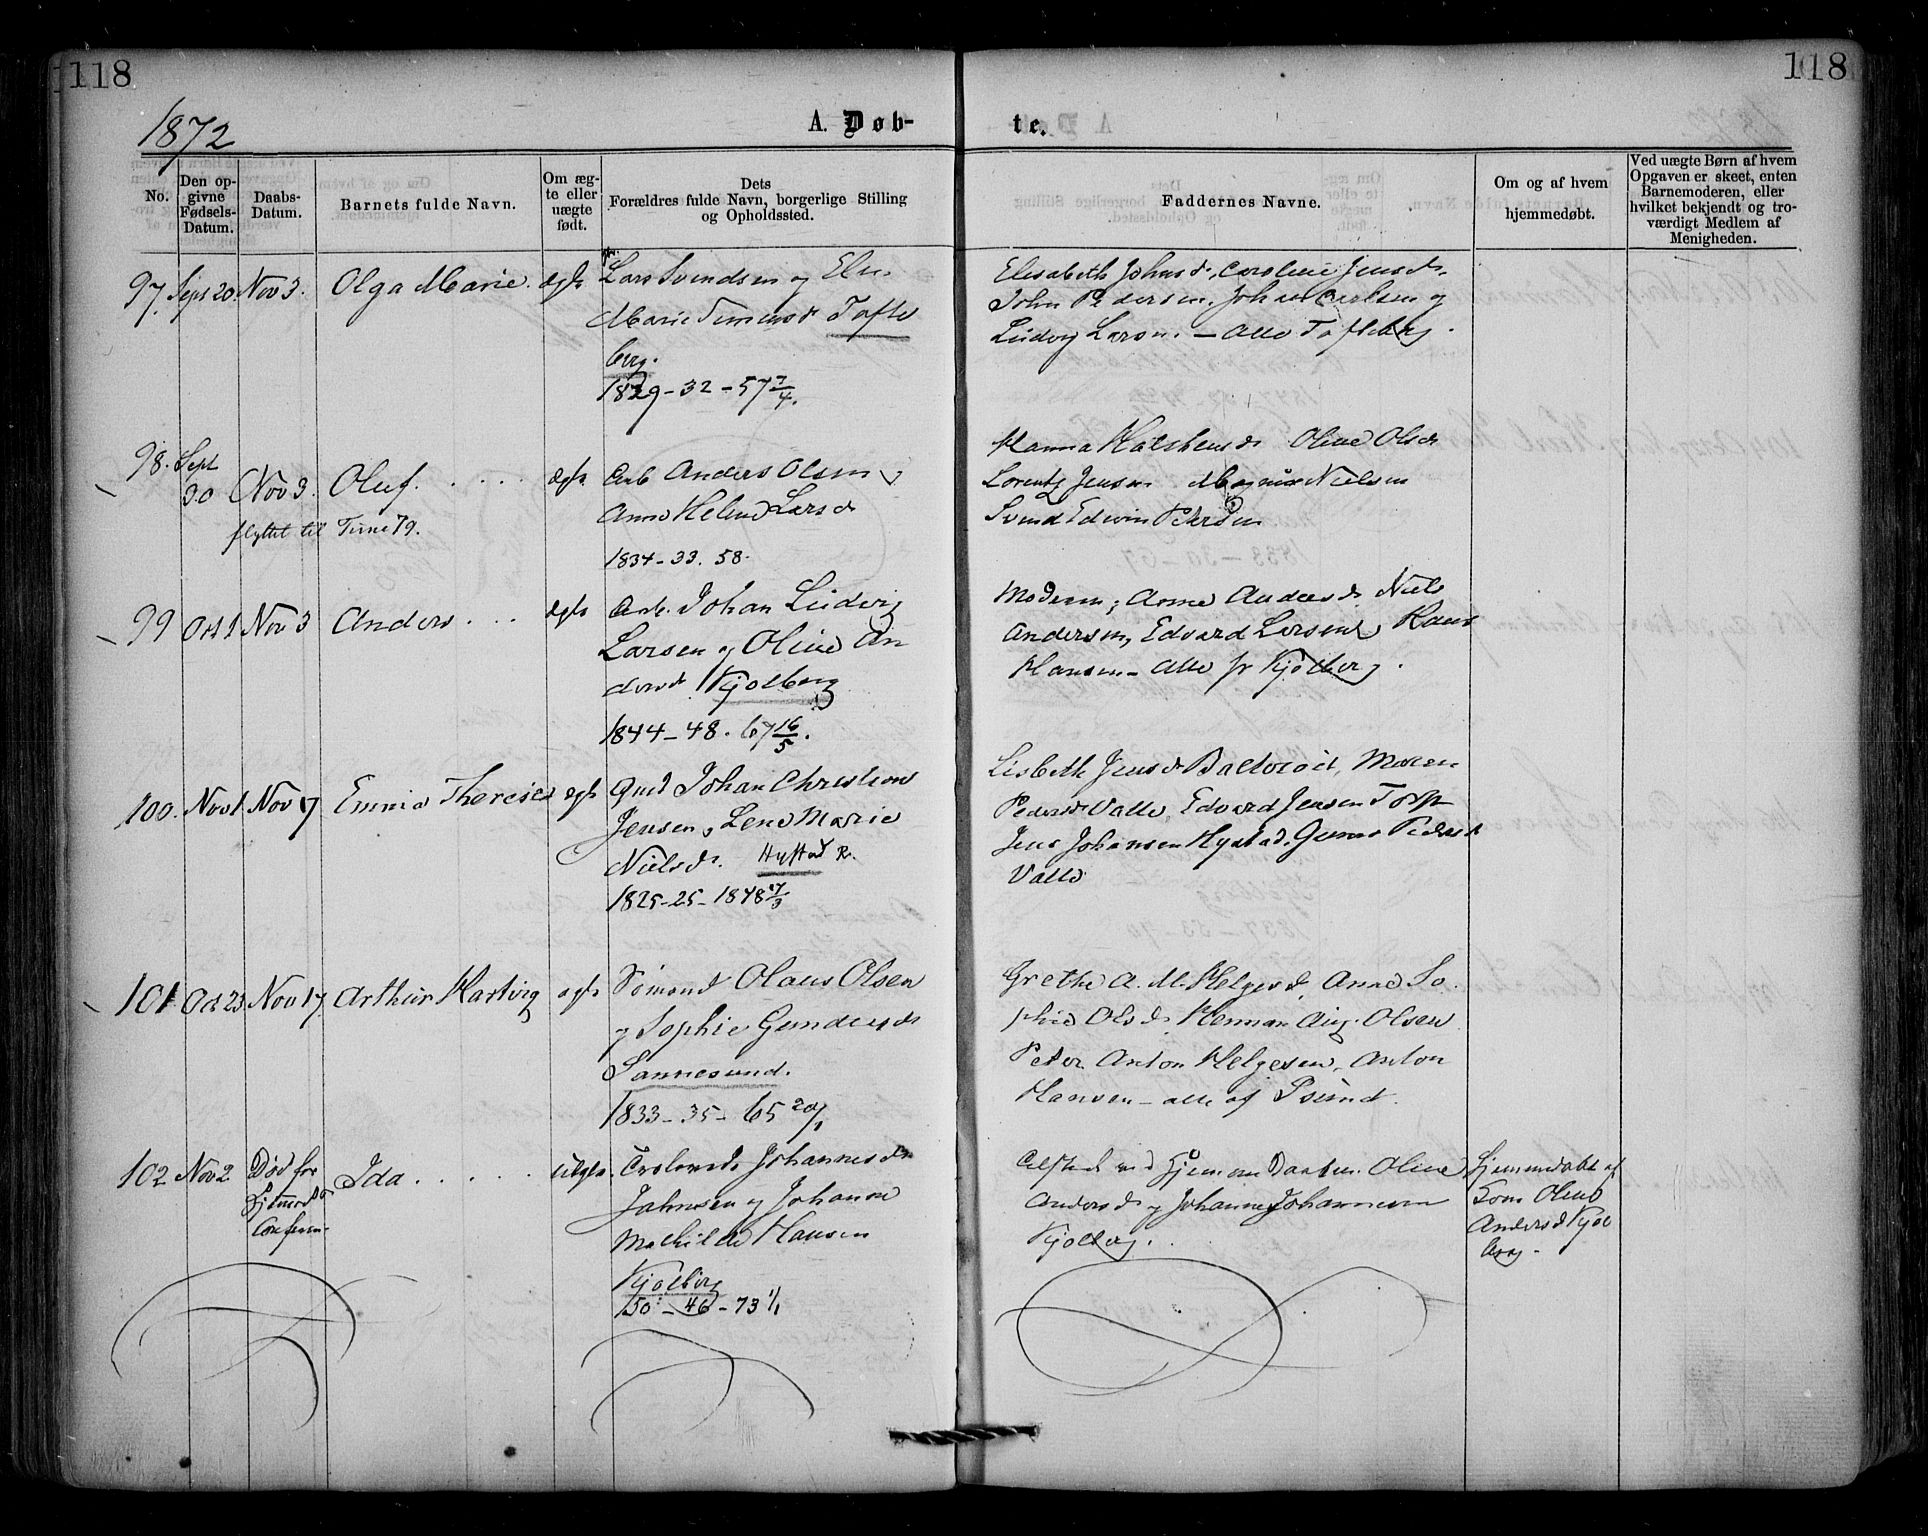 118
118
1872
A. Døb-
te.
No.
Den op-
givne
Fødsels-
Datum.
Daabs-
Datum.
Barnets fulde Navn.
Om æg-
te eller
uægte
født.
Dets
Forældres fulde Navn, borgerlige Stilling
og Opholdssted.
Faddernes Navne.
Om og af hvem
hjemmedøbt.
Ved uægte Børn af hvem
Opgaven er skeet, enten
Barnemoderen, eller
hvilket bekjendt og tro-
værdigt Medlem af
Menigheden.
97. Sept 20. Nov 3. Olga Marie. ægte
Lars Svendsen og Else
Marie Simensd Tofte
berg.
1829-32-57 7/4.
Elisabeth Johnsd. Caroline Jensd.
John Pedersen. Johan Carlsen og
Ludvig Larsen. - Alle Tofteberg.
98. Sept
30 Nov 3. Oluf. . . . . ægte
flyttet til Tune 79.
Arb Anders Olsen
Anne Helene Larsd
1834-33. 58.
Hanna Halstensd Oline Olsd
Lorentz Jensen Magnus Nielsen
Svend Edvin Petersen
99 Oct 1 Nov 3 Anders . . . ægte
Arb. Johan Ludvig
Larsen og Oline An
dersd. Kjølberg
1844-48. 67 16/5.
Moderen, Anne Andersd. Niels
Andersen, Edvard Larsen, Hans
Hansen - Alle fr Kjølberg.
100. Nov 1 Nov 17 Emma Therese ægte
Gud Johan Christian
Jensen, Lene Marie
Nielsd. Hystad R.
1825-25-1848 17/3
Lisbeth Jensd Maren
Pedersd Valle, Edvard Jensen Torp
Jens Johansen Hystad. Pedersd
Valle
101 Oct 23 Nov 17 Arthur Hartvig ægte
Sømand Olaus Olsen
og Sophie Gundersd
Sannesund.
1833-35-65 20/1
Grethe A. M. Helgesd, Anne So
phie Olsd Herman Aug. Olsen
Peter Anton Helgesen, Anton
Hansen - alle af Ssund.
102 Nov 2 Død før Ida . . . . . uægte.
Johannes
Johnsen og Johanne
Mathilde Hansen
Kjølberg
50-46-73 1/1
ved Hjemmedaaben. Oline
Andersd og Johannes Johannesen
Kjølberg.
Hjemmedøbt af
Kone Oline
Andersd Kjøl
berg.